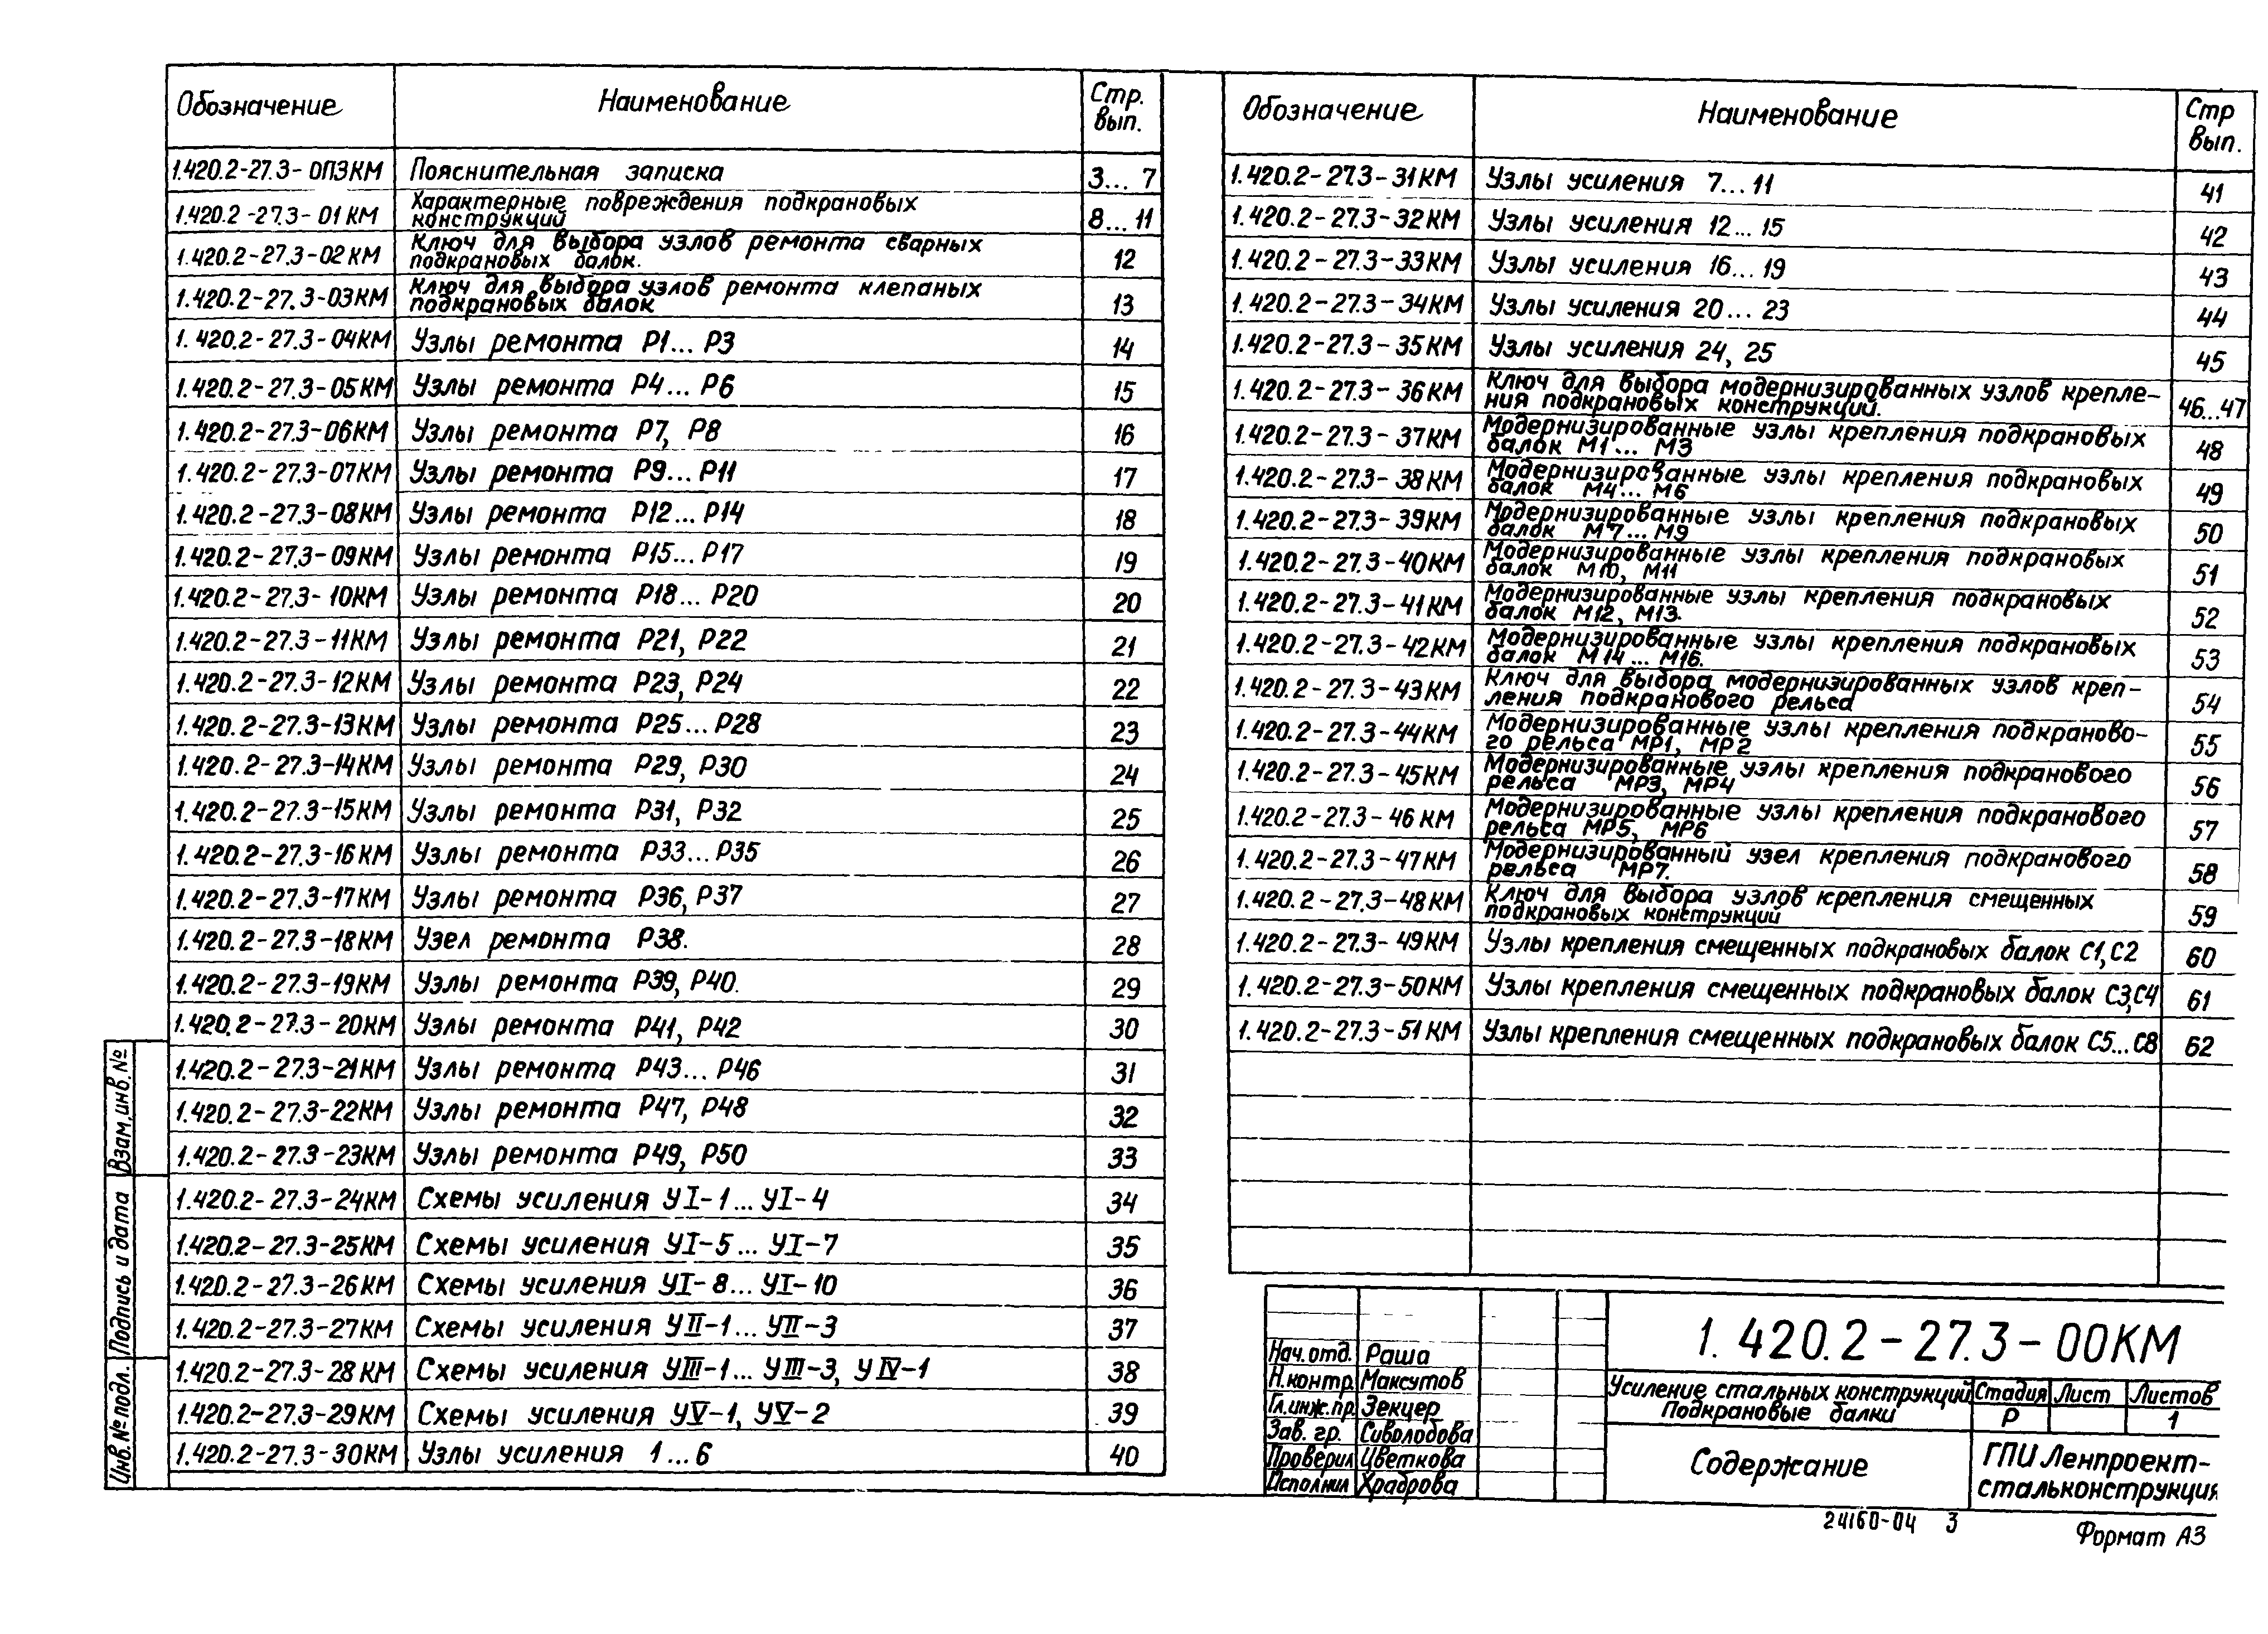 Обозначение Наименование Стр. вып.
1.420.2-27.3-0ПЗКМ Пояснительная записка 3...7
1.420.2-27.3-01КМ Характерные повреждения подкрановых
конструкций 8...11
1.420.2-27.3-02КМ Ключ для выбора узлов ремонта сварных
подкрановых балок. 12
1.420.2-27.3-03КМ Ключ для выбора узлов ремонта клепаных
подкрановых балок 13
1.420.2-27.3-04КМ Узлы ремонта Р1...Р3 14
1.420.2-27.3-05КМ Узлы ремонта Р4...Р6 15
1.420.2-27.3-06КМ Узлы ремонта Р7, Р8 16
1.420.2-27.3-07КМ Узлы ремонта Р9...Р11 17
1.420.2-27.3-08КМ Узлы ремонта Р12...Р14 18
1.420.2-27.3-09КМ Узлы ремонта Р15...Р17 19
1.420.2-27.3-10КМ Узлы ремонта Р18...Р20 20
1.420.2-27.3-11КМ Узлы ремонта Р21, Р22 21
1.420.2-27.3-12КМ Узлы ремонта Р23, Р24 22
1.420.2-27.3-13КМ Узлы ремонта Р25...Р28 23
1.420.2-27.3-14КМ Узлы ремонта Р29, Р30 24
1.420.2-27.3-15КМ Узлы ремонта Р31, Р32 25
1.420.2-27.3-16КМ Узлы ремонта Р33...Р35 26
1.420.2-27.3-17КМ Узлы ремонта Р36, Р37 27
1.420.2-27.3-18КМ Узел ремонта Р38. 28
1.420.2-27.3-19КМ Узлы ремонта Р39, Р40. 29
1.420.2-27.3-20КМ Узлы ремонта Р41, Р42 30
1.420.2-27.3-21КМ Узлы ремонта Р43...Р46 31
1.420.2-27.3-22КМ Узлы ремонта Р47, Р48 32
1.420.2-27.3-23КМ Узлы ремонта Р49, Р50 33
1.420.2-27.3-24КМ Схемы усиления УI-1...УI-4 34
1.420.2-27.3-25КМ Схемы усиления УI-5...УI-7 35
1.420.2-27.3-26КМ Схемы усиления УI-8...УI-10 36
1.420.2-27.3-27КМ Схемы усиления УII-1...УII-3 37
1.420.2-27.3-28КМ Схемы усиления УIII-1...УIII-3, УIV-1 38
1.420.2-27.3-29КМ Схемы усиления УV-1, УV-2 39
1.420.2-27.3-30КМ Узлы усиления 1...6 40
Обозначение Наименование Стр вып.
1.420.2-27.3-31КМ Узлы усиления 7...11 41
1.420.2-27.3-32КМ Узлы усиления 12...15 42
1.420.2-27.3-33КМ Узлы усиления 16...19 43
1.420.2-27.3-34КМ Узлы усиления 20...23 44
1.420.2-27.3-35КМ Узлы усиления 24, 25 45
1.420.2-27.3-36КМ Ключ для выбора модернизированных узлов крепле-
ния подкрановых конструкций. 46...47
1.420.2-27.3-37КМ Модернизированные узлы крепления подкрановых
балок М1...М3 48
1.420.2-27.3-38КМ Модернизированные узлы крепления подкрановых
балок М4...М6 49
1.420.2-27.3-39КМ Модернизированные узлы крепления подкрановых
балок М7...М9 50
1.420.2-27.3-40КМ Модернизированные узлы крепления подкрановых
балок М10, М11 51
1.420.2-27.3-41КМ Модернизированные узлы крепления подкрановых
балок М12, М13. 52
1.420.2-27.3-42КМ Модернизированные узлы крепления подкрановых
балок М14...М16. 53
1.420.2-27.3-43КМ Ключ для выбора модернизированных узлов креп-
ления подкранового рельса 54
1.420.2-27.3-44КМ Модернизированные узлы крепления подкраново-
го рельса МР1, МР2 55
1.420.2-27.3-45КМ Модернизированные узлы крепления подкранового
рельса МР3, МР4 56
1.420.2-27.3-46КМ Модернизированные узлы крепления подкранового
рельса МР5, МР6 57
1.420.2-27.3-47КМ Модернизированный узел крепления подкранового
рельса МР7. 58
1.420.2-27.3-48КМ Ключ для выбора узлов крепления смещенных
подкрановых конструкций 59
1.420.2-27.3-49КМ Узлы крепления смещенных подкрановых балок С1,С2 60
1.420.2-27.3-50КМ Узлы крепления смещенных подкрановых балок С3,С4 61
1.420.2-27.3-51КМ Узлы крепления смещенных подкрановых балок С5...С8 62
Взам.инв.№
Подпись и дата
Инв.№подл.
Нач.отд. Раша
Н.контр. Максутов
Гл.инж.пр. Зекцер
Зав. гр. Сиволобова
Проверил Цветкова
Исполнил Храброва
1.420.2-27.3-00КМ
Усиление стальных конструкций
Подкрановые балки
Стадия Лист Листов
Р 1
Содержание
ГПИ Ленпроект-
стальконструкция
24160-04 3
Формат А3